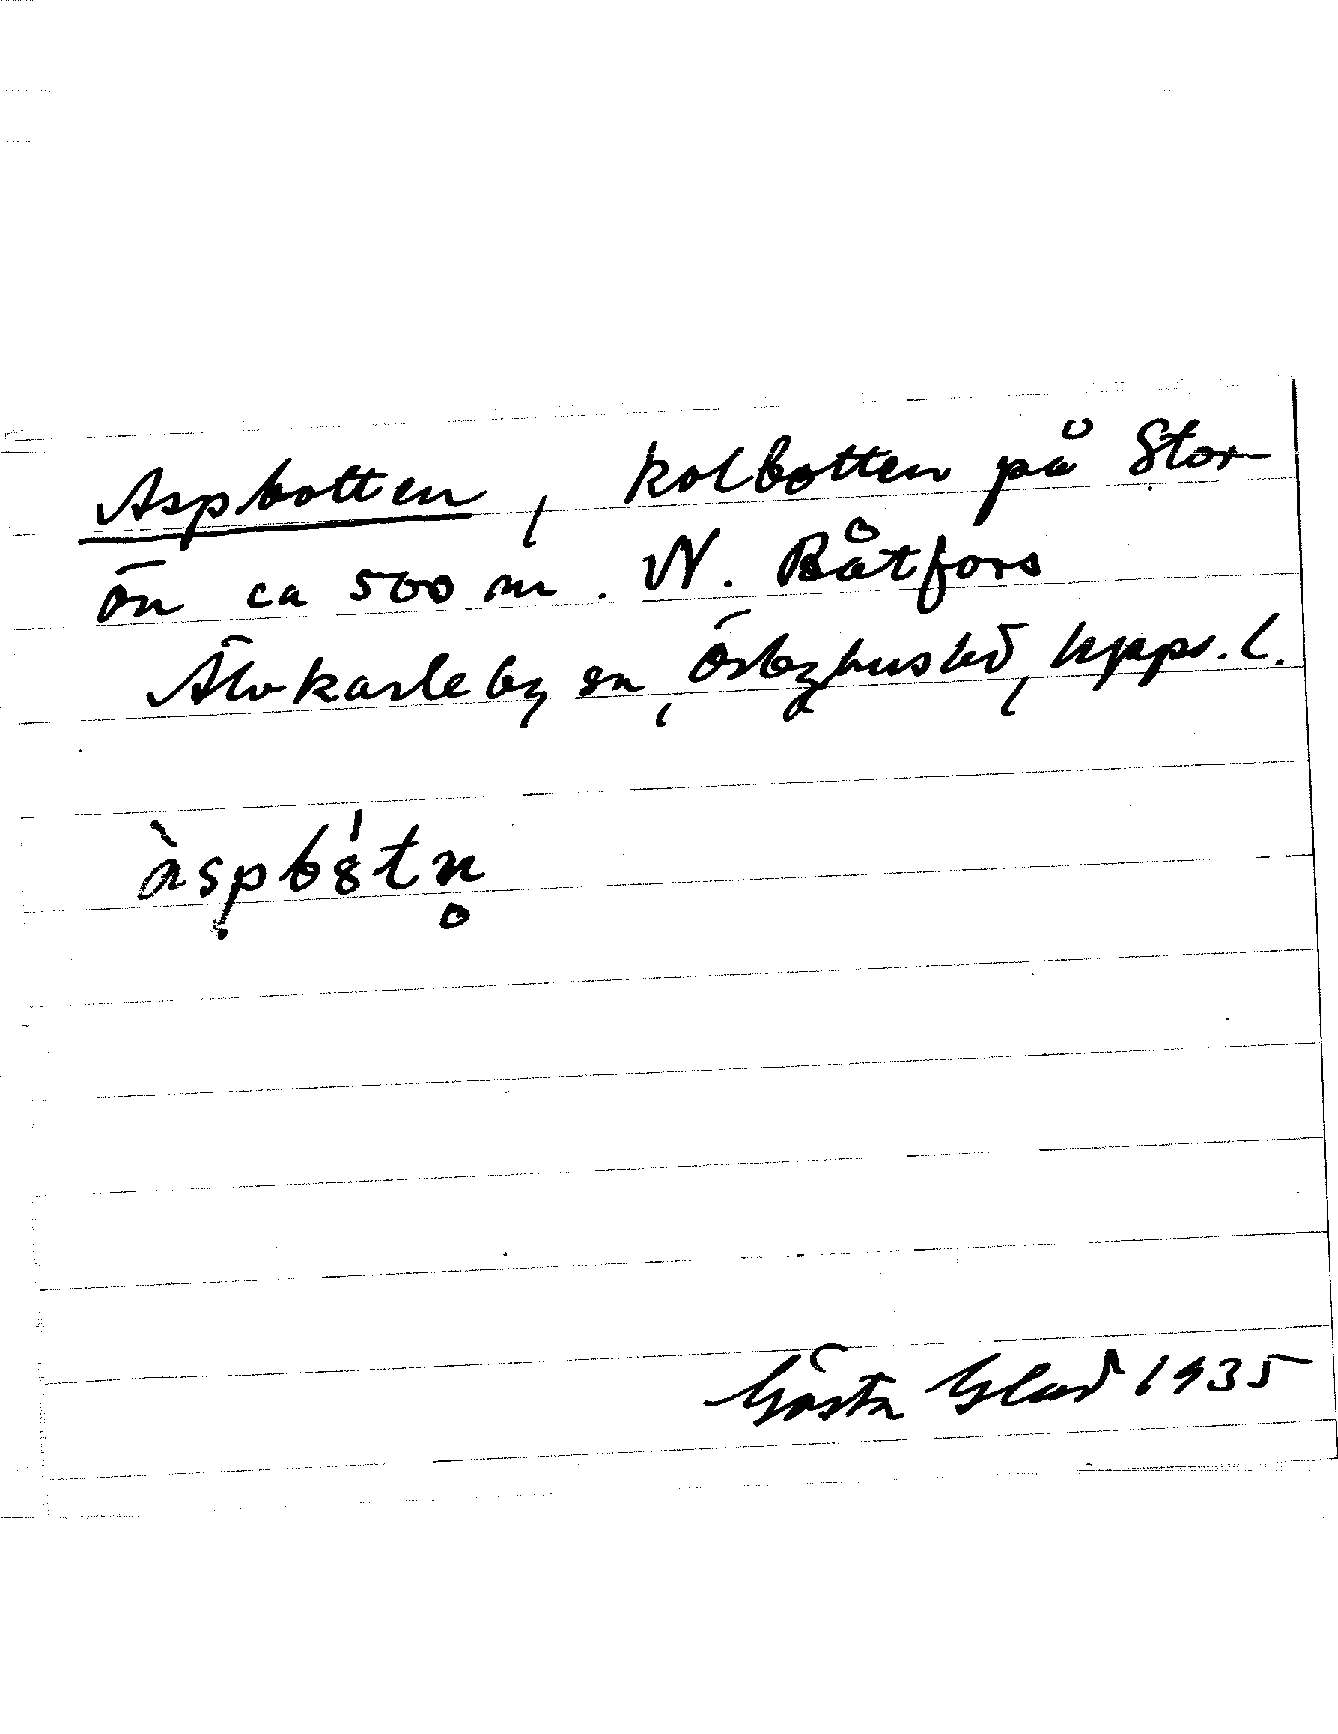 Aspbotten, kolbotten på Stor-
ön ca 500 m. N. Båtfors
Älvkarleby sn, Örbyhus hd, Upps. l.
àspbȣ́tn̥
Gösta Glad 1935